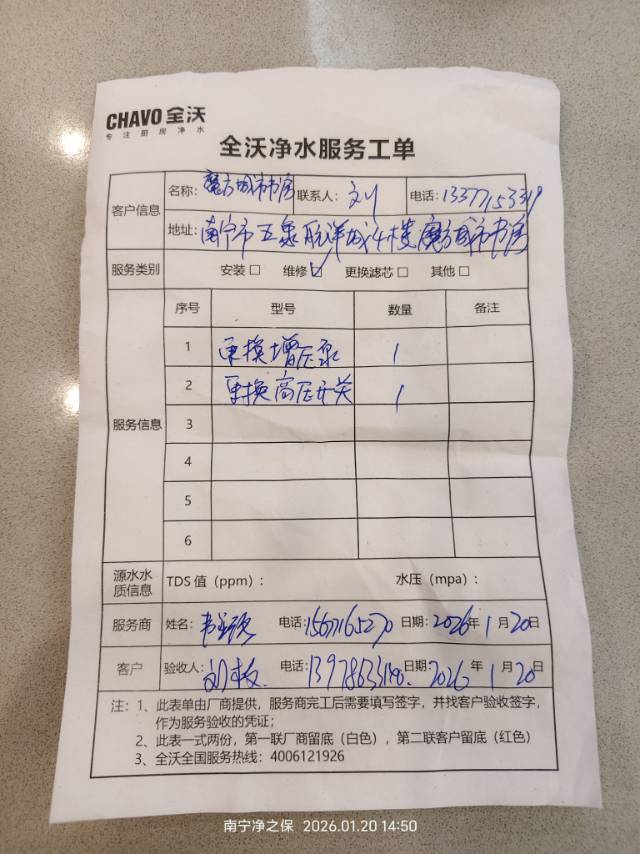 CHAVO 全沃
专注厨房净水
全沃净水服务工单
客户信息
名称: 魔方城市书房 联系人: 电话: 13377153319
地址: 南宁市五象航洋城4楼魔方城市书房
服务类别 安装□ 维修☑ 更换滤芯□ 其他□
服务信息
序号 型号 数量 备注
1 更换增压泵 1
2 更换高压开关 1
3
4
5
6
源水水质信息 TDS 值 (ppm): 水压 (mpa):
服务商 姓名: 电话: 15677165270 日期: 2026年1月20日
客户 验收人: 电话: 日期: 2026年1月20日
注: 1、此表单由厂商提供,服务商完工后需要填写签字,并找客户验收签字,
作为服务验收的凭证;
2、此表一式两份,第一联厂商留底(白色),第二联客户留底(红色)
3、全沃全国服务热线: 4006121926
南宁净之保 2026.01.20 14:50